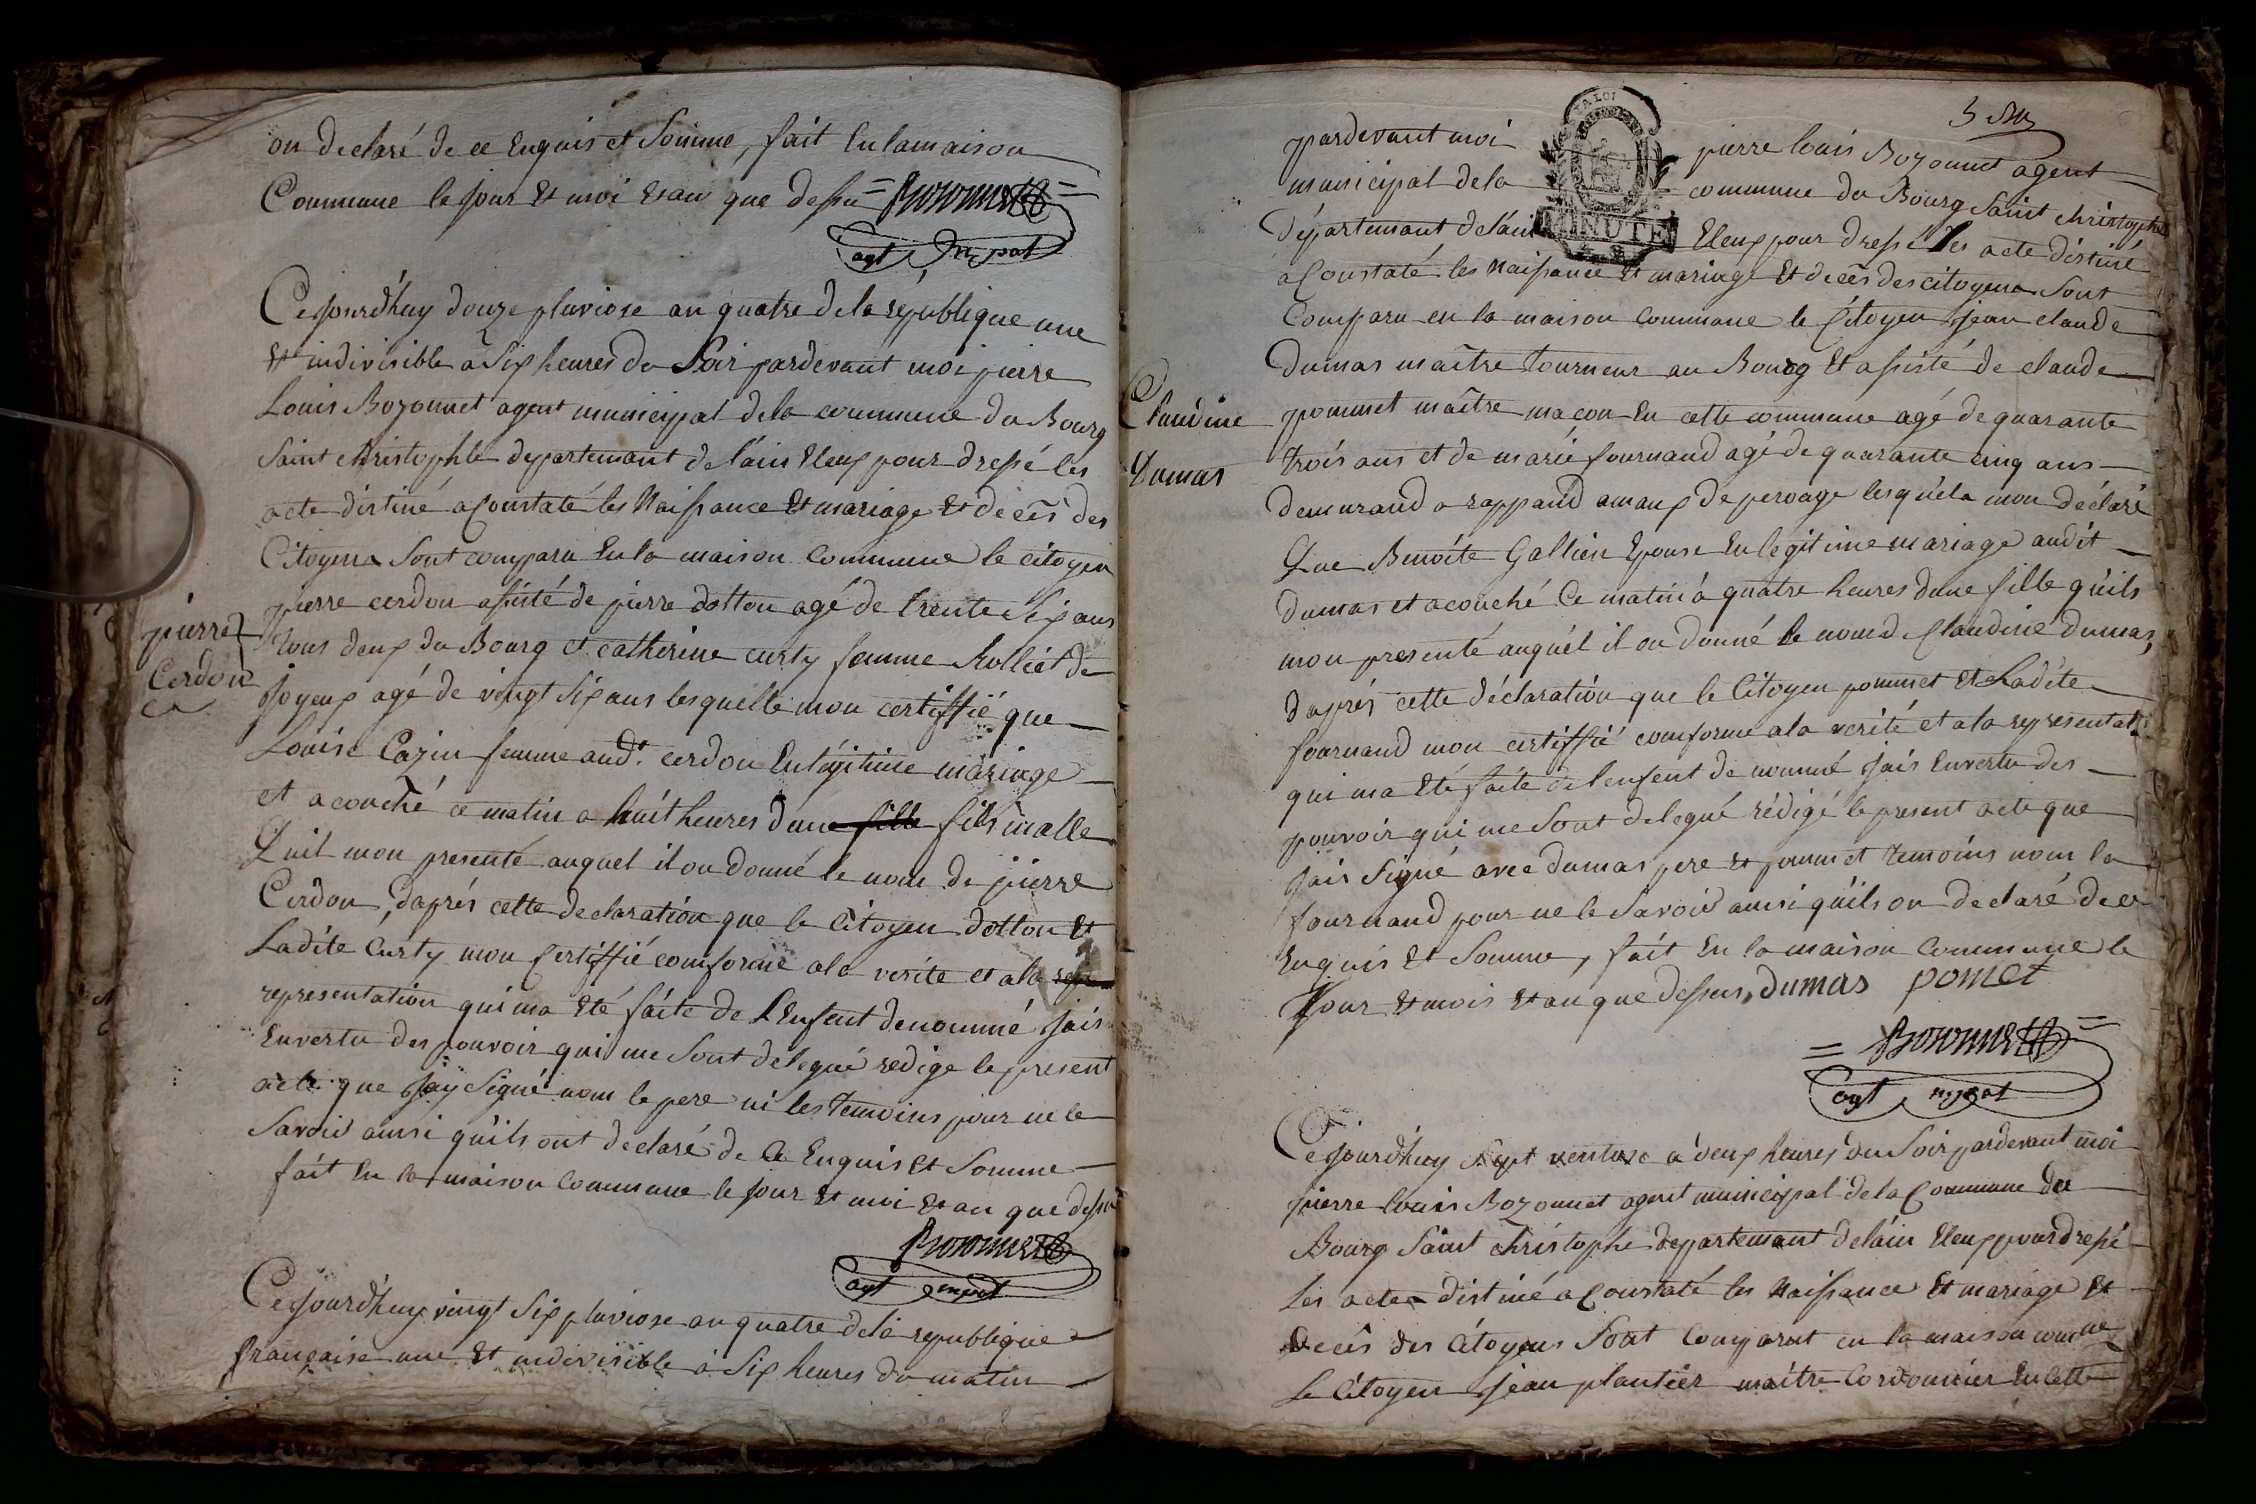 on declaré de ce Enquis et Somme, fait En la maison
Commune le jour Et moi Et an que dessu = Bozonnet =
agt mpal
Cejourd'huy douze pluviose an quatre de la république une
Et indivisible a Six heures du Soir pardevant moi pierre
Louis Bozonnet agent municipal de la commune du Bourg
Saint christophle departemant de l'ain Eleux pour dressé les
acte distiné a Constaté les Naissance Et mariage Et décès des
Citoyens Sont comparu En la maison Commune le citoyen
pierre cerdon assisté de pierre dotton agé de trente Six ans
tous deux du Bourg et catherine curty femme Rolliet de
joyeux agé de vingt Six ans lesquelle mon certiffié que
Louise Cazin femme aud.t cerdon En légitime mariage
et acouché ce matin a huit heures dune fille fils malle
Quil mon presenté auquel il on donné le nom de pierre
Cerdon, daprés cette declaration que le Citoyen dotton Et
Ladite Curty mon Certiffié comforme a la verite et a la repre
representation qui ma Eté faite de l'Enfent denommé jais
En vertu des pouvoir qui me Sont delegué redige le present
acte que jay Signé nom le pere ni les temoins pour ne le
Savoir ainsi quils ont declaré de ce Enquis Et Somme
fait En la maison Commune le jour Et moi Et an que dessu
Bozonnet
agt mpal
pierre
Cerdon
Cejourd'huy vingt Six pluviose an quatre de la republique
française une Et indivisible à Six heures du matin
pardevant moi pierre louis Bozonnet agent
municipal de la commune du Bourg Saint christophe
département de l'ain Eleux pour dressé les acte distiné
a Constaté les Naissance Et mariage Et décès des citoyens Sont
Comparu en la maison commune le Citoyen jean claude
Dumas maître tourneur au Bourg Et assisté de claude
pommet maître macon En cette commune agé de quarante
trois ans et de marie fournand agé de quarante cinq ans
demurand a rappand amaux de perouge lesquels mon déclaré
Que Benoite Gallien Epouse En legitime mariage audit
dumas et acouché Ce matin à quatre heures dune fille quils
mon presenté auquél il on donné le nom d Claudine dumas,
daprés cette déclaration que le Citoyen pommet Et Ladite
fournand mon certiffié comforme a la verité et a la representat.
qui ma Eté faite de lenfent de nommé jais En vertu des
pouvoir qui me Sont delegué rédigé le present acte que
jais Signé avec dumas pere Et pommet temoins nom la
fournand pour ne le Savoir ainsi quils on declaré de ce
Enquis Et Somme, fait En la maison Commune le
Jour Et mois Et an que dessus, dumas pomet
= Bozonnet =
agt mpal
Claudine
Dumas
Cejourd'huy Sept ventose à deux heures du Soir pardevant moi
pierre louis Bozonnet agent municipal de la Commune du
Bourg Saint christophe departemant de l'ain Eleux pour dressé
Les actes distiné a Constaté les Naissance Et mariage Et
decés des Citoyens Sont Comparut en la maison comune
Le Citoyen jean plantier maître Cordonnier En cette
LA LOI
MINUTE